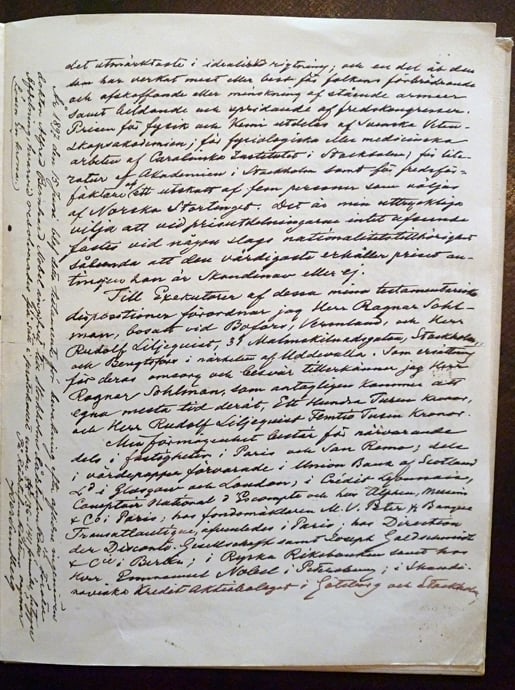 det utmärktaste i idealisk rigtning; och en del åt den
som har verkat mest eller best för folkens förbrödrande
och afskaffande eller minskning af stående armeer
samt bildande och spridande af fredskongresser.
Prisen för fysik och kemi utdelas af Svenska Veten-
skapsakademien; för fysiologiska eller medicinska
arbeten af Carolinska Institutet i Stockholm; för lite-
ratur af Akademien i Stockholm samt för fredsför-
fäktare af ett utskott af fem personer som väljas
af Norska Stortinget. Det är min uttryckliga
vilja att vid prisutdelningarne intet afseende
fästes vid någon slags nationalitetstillhörighet
sålunda att den värdigaste erhåller priset an-
tingen han är Skandinav eller ej.
Till Exekutorer af dessa mina testamentariska
dispositioner förordnar jag Herr Ragnar Sohl-
man, bosatt vid Bofors, Vermland, och Herr
Rudolf Liljequist, 31 Malmskilnadsgatan, Stockholm,
och Bengtsfors i närheten af Uddevalla. Som ersättning
för deras omsorg och besvär tillerkänner jag Herr
Ragnar Sohlman, som antagligen kommer att
egna mesta tid deråt, Ett Hundra Tusen kronor,
och Herr Rudolf Liljequist Femtio Tusen Kronor.
Min förmögenhet består för närvarande
dels i fastigheter i Paris och San Remo; dels
i värdepapper förvarade i Union Bank of Scotland
Ld i Glasgow och London, i Crédit Lyonnais,
Comptoir National d'Escompte och hos Alphen, Messin
& Co i Paris; hos fondmäklaren M. V. Peter & Banque
Transatlantique, afvenledes i Paris; hos Direction
der Disconto Gesellschaft samt Joseph Goldschmidt
& Cie i Berlin; i Ryska Riksbanken samt hos
Herr Emmanuel Nobel i Petersburg; i Skandi-
naviska Kredit Aktiebolaget i Göteborg och Stockholm,